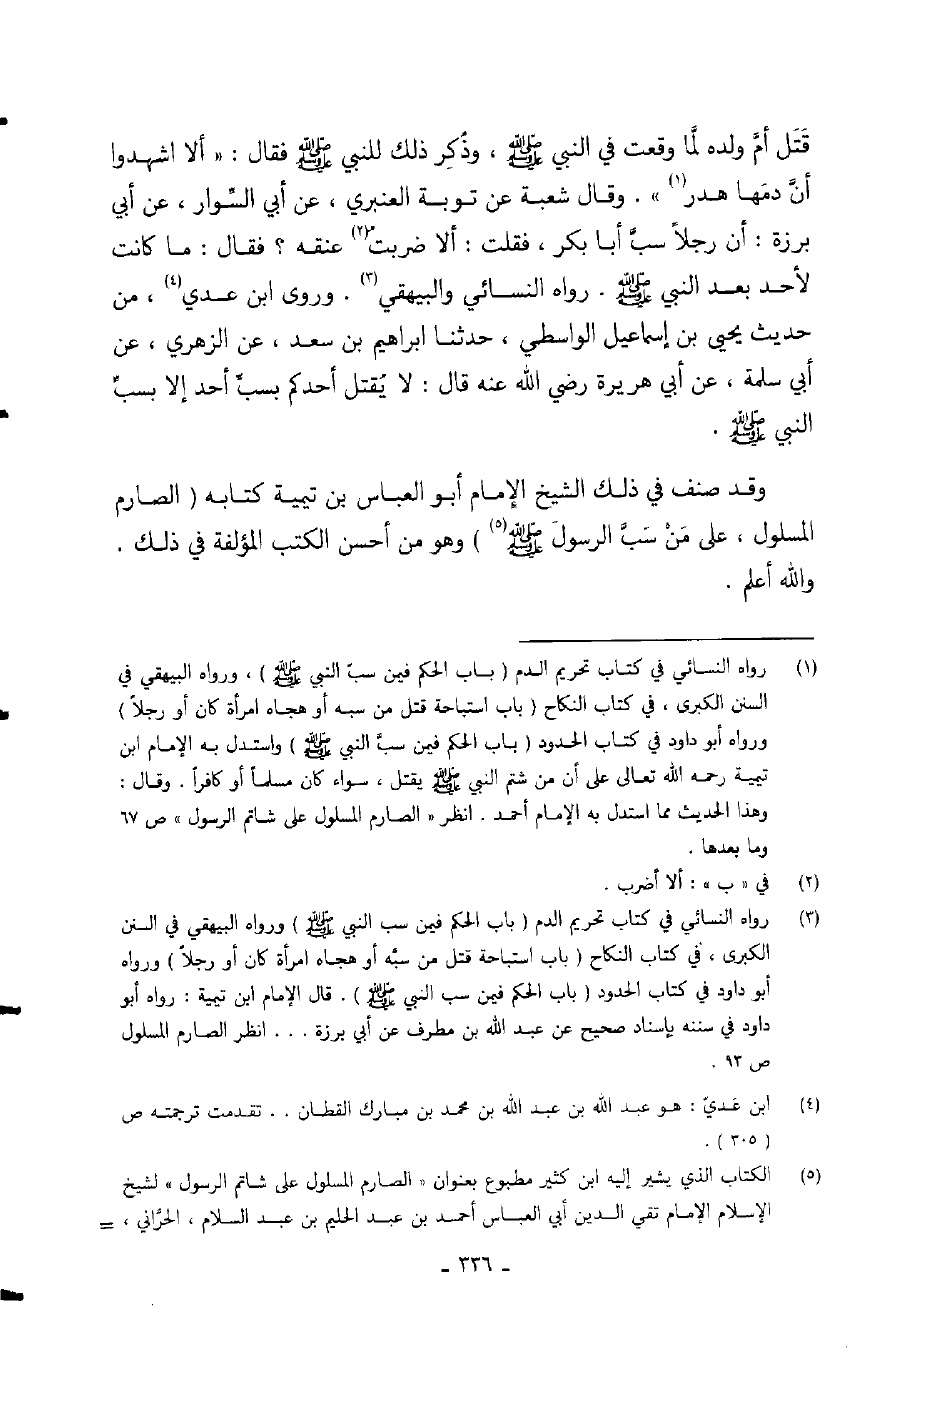 قَتَل أمَّ ولده لمَّا وقعت في النبي ﷺ ، وذُكِر ذلك للنبي ﷺ فقال : « ألا اشهدوا
أنَّ دمَها هدر(١) » . وقال شعبة عن توبة العنبري ، عن أبي السَّوار ، عن أبي
برزة : أن رجلاً سبَّ أبا بكر ، فقلت : ألا ضربت(٢) عنقه ؟ فقال : ما كانت
لأحد بعد النبي ﷺ . رواه النسائي والبيهقي(٣) . وروى ابن عدي(٤) ، من
حديث يحيى بن إسماعيل الواسطي ، حدثنا ابراهيم بن سعد ، عن الزهري ، عن
أبي سلمة ، عن أبي هريرة رضي الله عنه قال : لا يُقتل أحدكم بسبِّ أحد إلا بسبِّ
النبي ﷺ .
وقد صنف في ذلك الشيخ الإمام أبو العباس بن تيمية كتابه ( الصارم
المسلول ، على مَنْ سَبَّ الرسولَ ﷺ(٥) ) وهو من أحسن الكتب المؤلفة في ذلك .
والله أعلم .
(١) رواه النسائي في كتاب تحريم الدم ( باب الحكم فيمن سبّ النبي ﷺ ) ، ورواه البيهقي في
السنن الكبرى ، في كتاب النكاح ( باب استباحة قتل من سبه أو هجاه امرأة كان أو رجلاً )
ورواه أبو داود في كتاب الحدود ( باب الحكم فيمن سبَّ النبي ﷺ ) واستدل به الإمام ابن
تيمية رحمه الله تعالى على أن من شتم النبي ﷺ يقتل ، سواء كان مسلماً أو كافراً . وقال :
وهذا الحديث مما استدل به الإمام أحمد . انظر « الصارم المسلول على شاتم الرسول » ص ٦٧
وما بعدها .
(٢) في « ب » : ألا أضرب .
(٣) رواه النسائي في كتاب تحريم الدم ( باب الحكم فيمن سب النبي ﷺ ) ورواه البيهقي في السنن
الكبرى ، في كتاب النكاح ( باب استباحة قتل من سبَّه أو هجاه امرأة كان أو رجلاً ) ورواه
أبو داود في كتاب الحدود ( باب الحكم فيمن سب النبي ﷺ ) . قال الإمام ابن تيمية : رواه أبو
داود في سننه بإسناد صحيح عن عبد الله بن مطرف عن أبي برزة . . . انظر الصارم المسلول
ص ٩٣ .
(٤) ابن عَديّ : هو عبد الله بن عبد الله بن محمد بن مبارك القطان . . تقدمت ترجمته ص
( ٣٠٥ ) .
(٥) الكتاب الذي يشير إليه ابن كثير مطبوع بعنوان « الصارم المسلول على شاتم الرسول » لشيخ
الإسلام الإمام تقي الدين أبي العباس أحمد بن عبد الحليم بن عبد السلام ، الحرَّاني ، =
- ٣٣٦ -